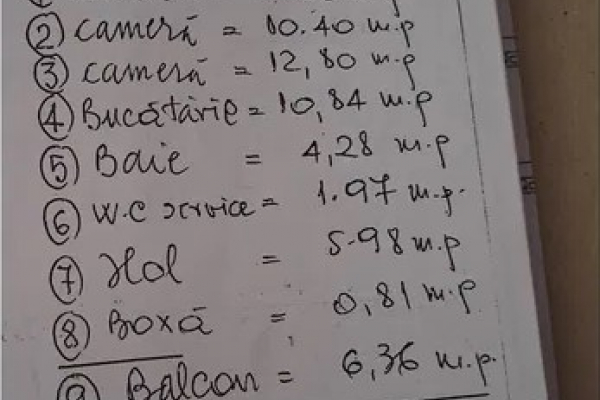 ② cameră = 10.40 m.p
③ cameră = 12,80 m.p
④ Bucătărie = 10,84 m.p
⑤ Baie = 4,28 m.p
⑥ W.C service = 1.97 m.p.
⑦ Hol = 5.98 m.p
⑧ Boxă = 0,81 m.p
⑨ Balcon = 6,36 m.p.